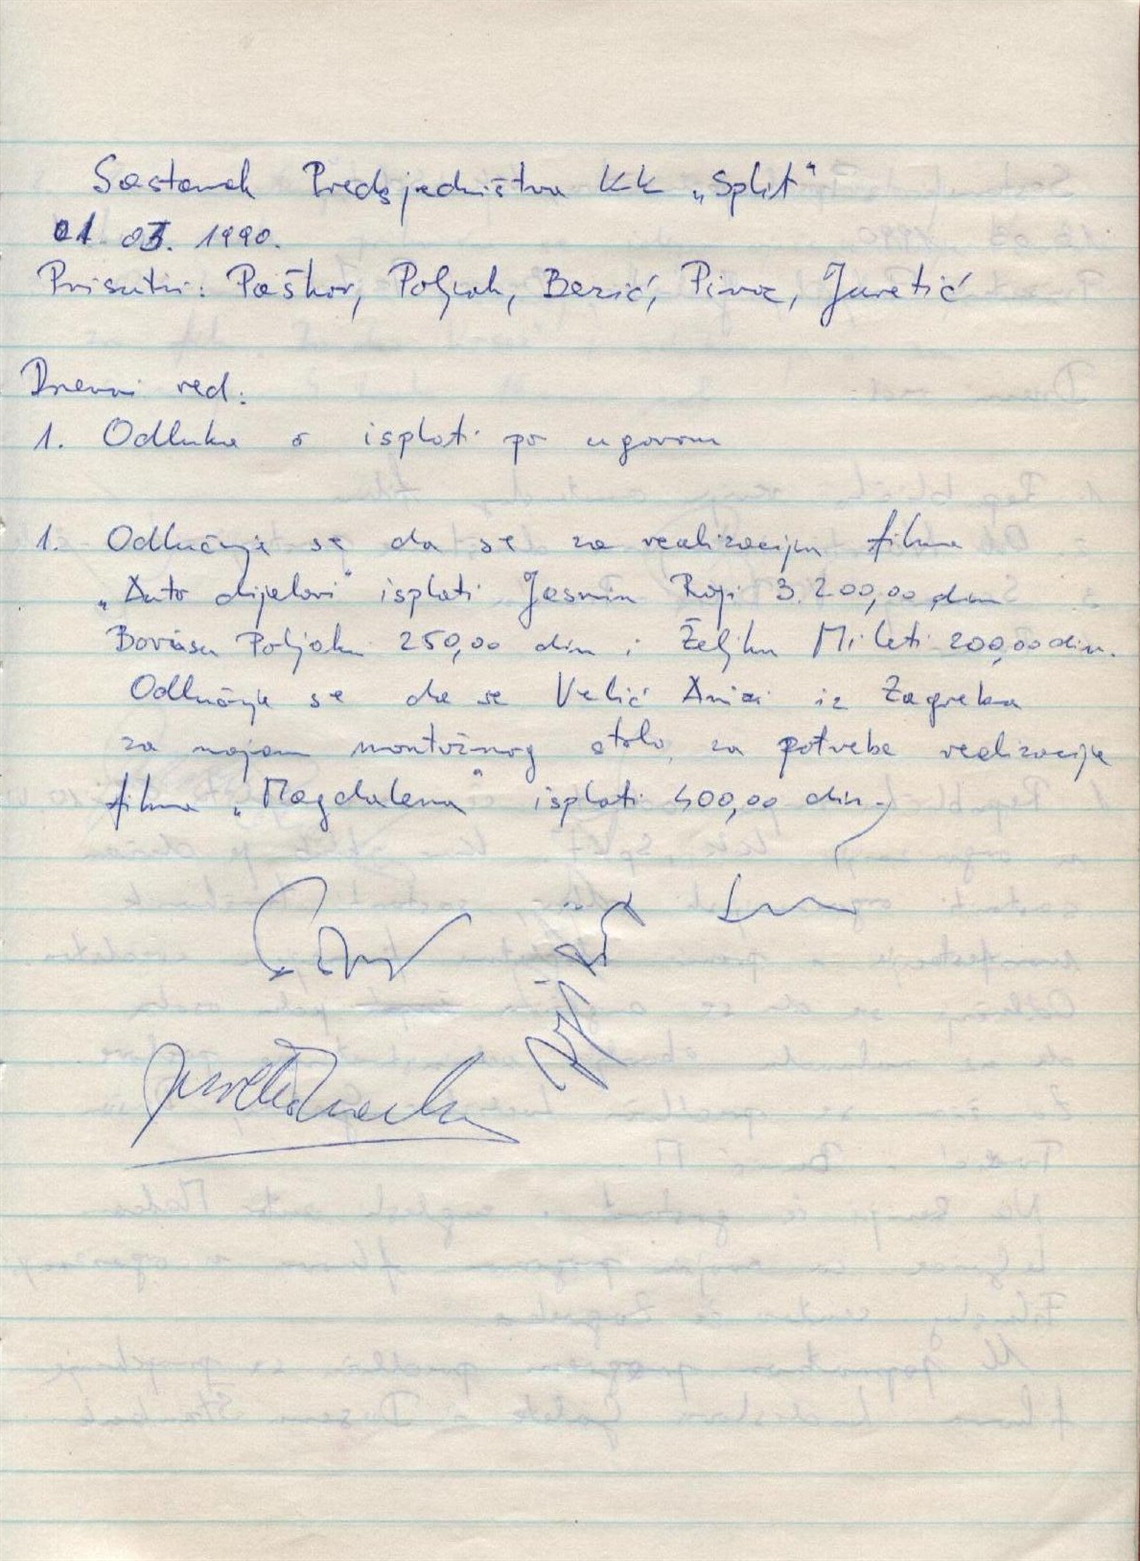 Sastanak Predsjedništva KK „Split"
01. 03. 1990.
Prisutni: Paškov, Poljak, Bezić, Pivac, Juretić
Dnevni red:
1. Odluka o isplati po ugovoru
1. Odlučuje se da se za realizaciju filma
„Auto dijelovi" isplati Jasmin Roji 3.200,00 din
Borisu Poljaku 250,00 din i Željku Mileti 200,00 din.
Odlučuje se da se Velić iz Zagreba
za najam montažnog stola za potrebe realizacije
filma „Magdalena" isplati 400,00 din.